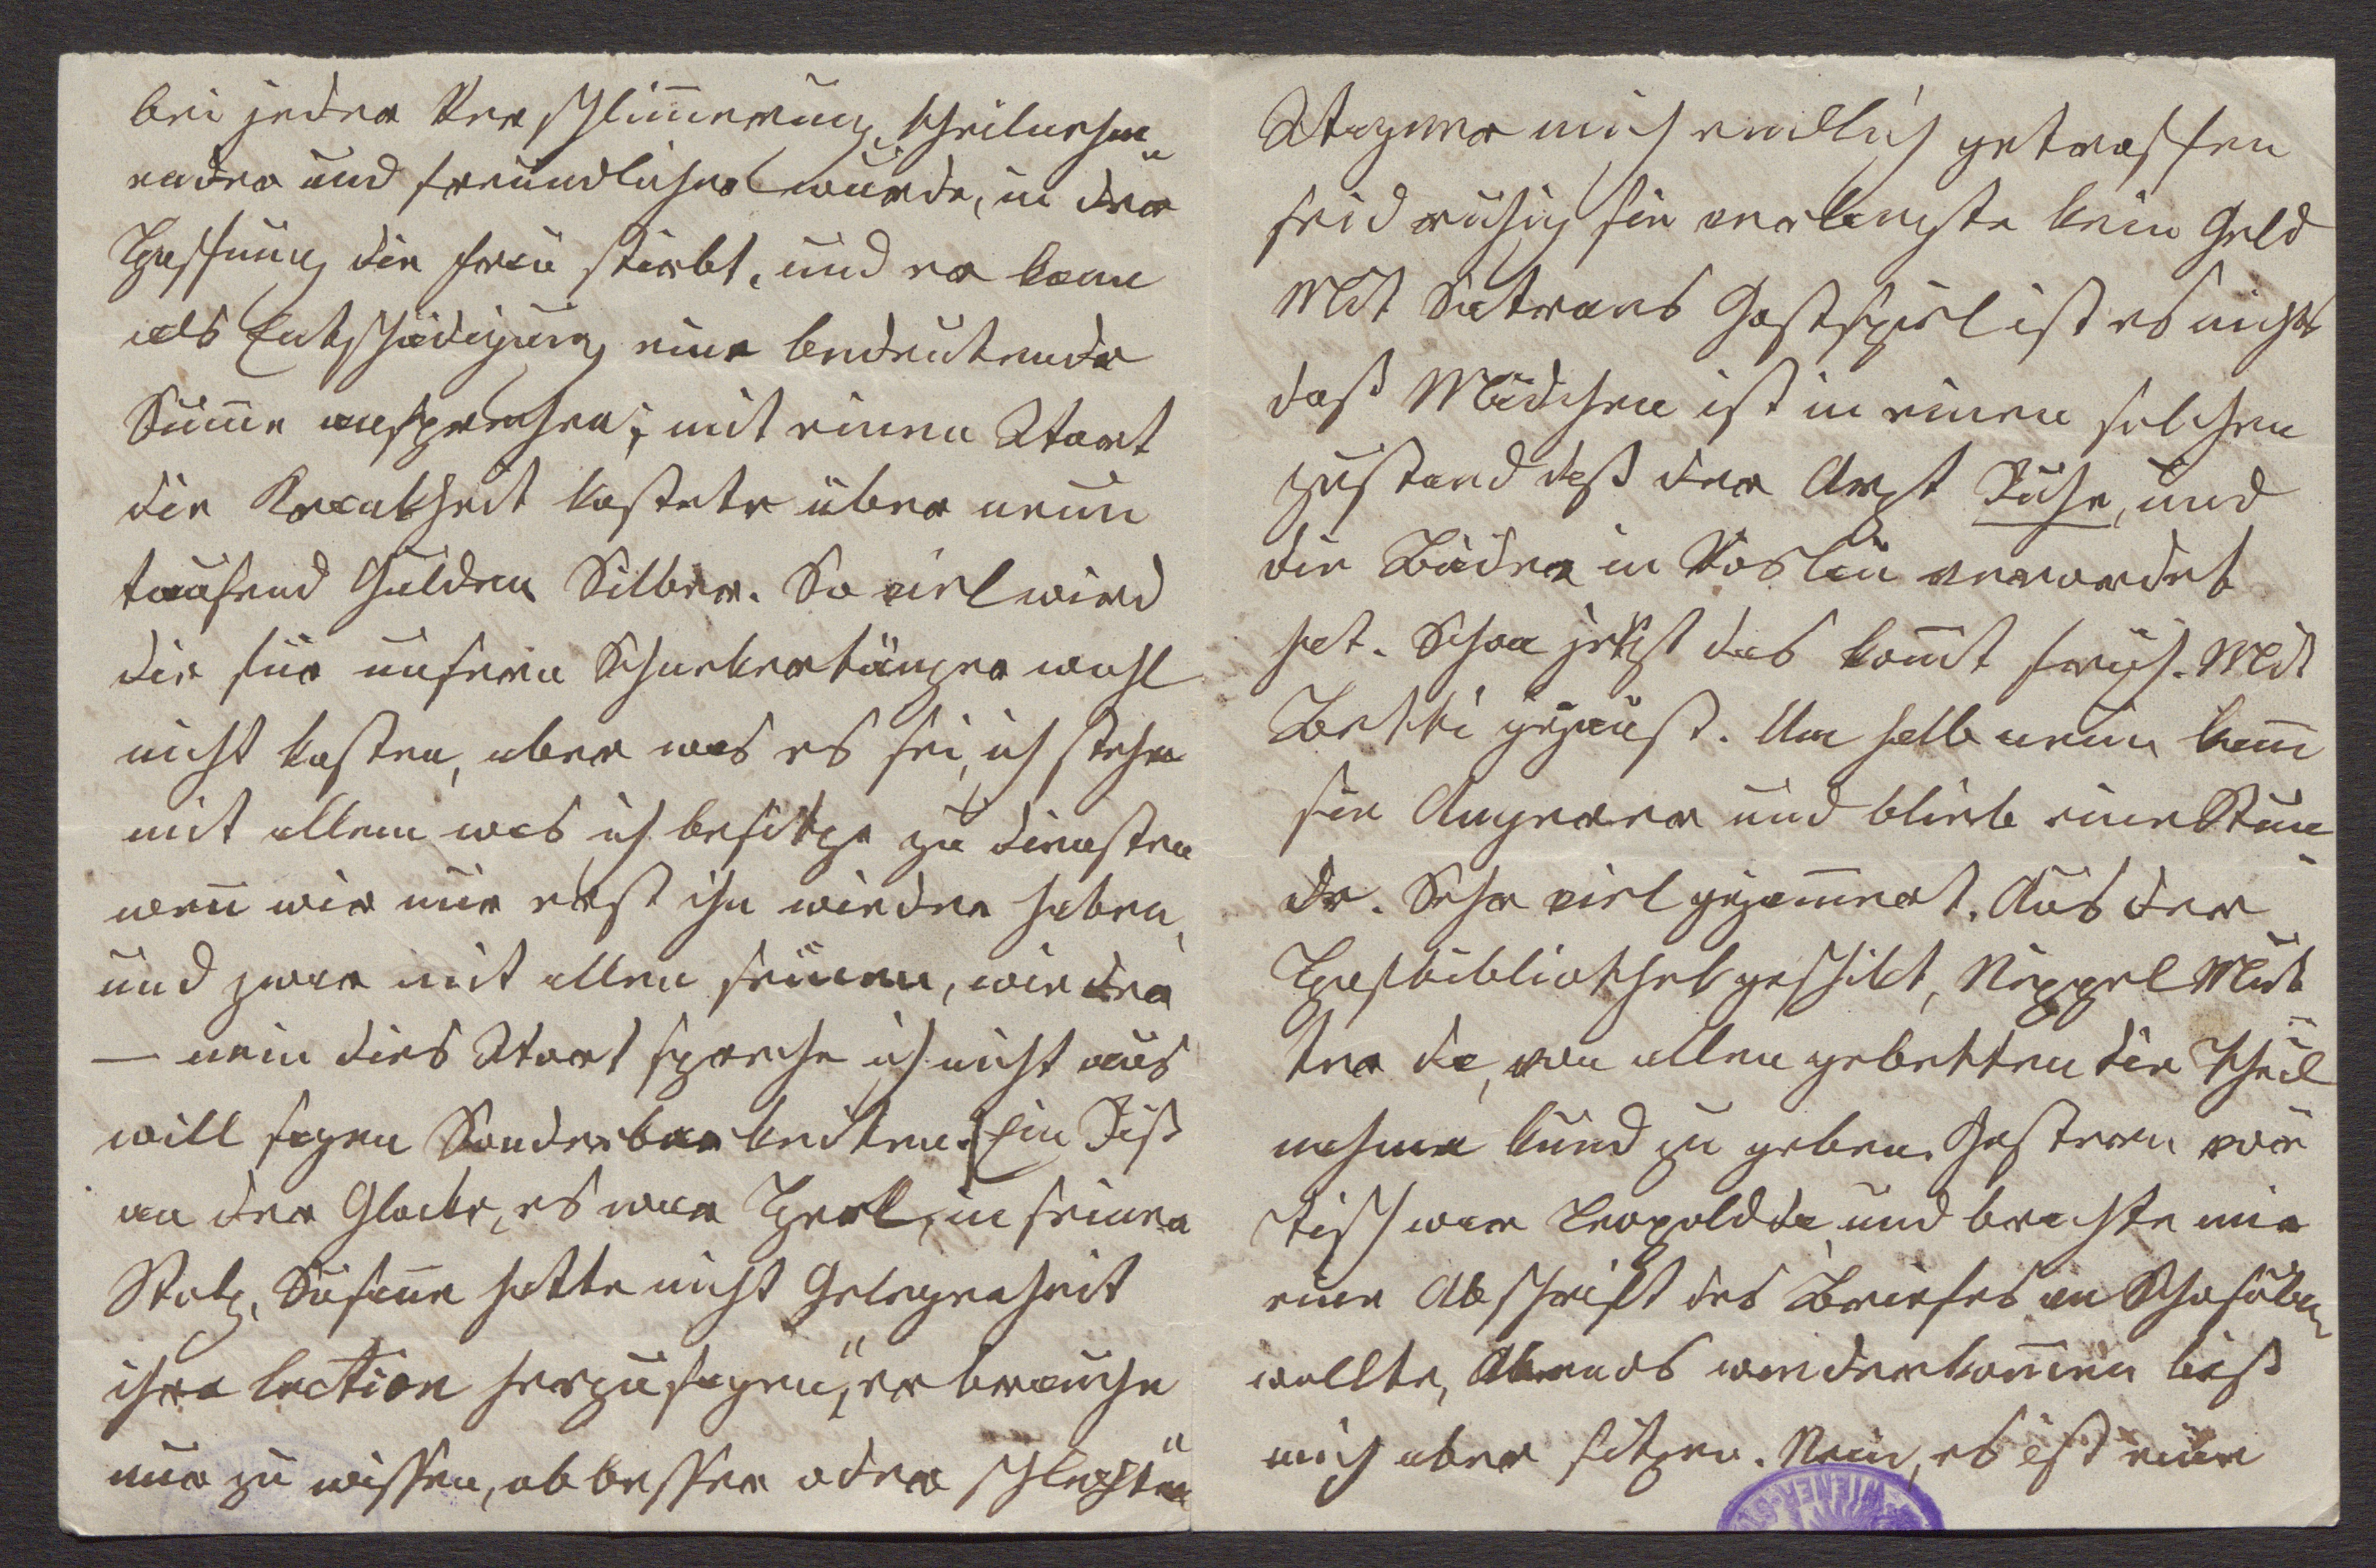 bei jeder Verschlim̄erung, theilnehm
ender und freundlicher wurde, in der
Hoffnung die Frau stirbt, und er kann
als Entschädigung eine bedeutende
Sum̄e ansprechen; mit einen Wort
die Krankheit kostete über neun
tausend Gulden Silber. So viel wird
die für unseren Schnekertänzer wohl
nicht kosten, aber was es sei, ich stehe
mit allem was ich besitze zu diensten
wen̄ wir nur erst ihn wieder haben,
und zwar mit allen seinen, wieder
— nein dies Wort spreche ich nicht aus
will sagen Sonderbarkeiten. Ein Riß
an der Glocke, es war Herl, in seinen
Stolz, Susan̄e hatte nicht Gelegenheit
ihre lection herzusagen, „er brauche
nur zu wissen, ob besser oder schlechter"
Wagner mich endlich getroffen
seid ruhig sie verlangte kein Geld
Mit Satrans Gastspiel ist es nichts
daß Mädchen ist in einen solchen
zustand daß der Arzt Ruhe, und
die Bäder in Vöslau verordnet
hat. Schon jetzt das kom̄t früh. Mit
Betti gejaust. Um halb neun kam̄
die Angerer und blieb eine Stun
de. Sehr viel gejam̄ert. Aus der
Hofbibliothek geschikt, Nippel Mut
ter da, von allen gebetten die Theil
nahme kund zu geben. Gestern vor
tisch war Leopold da und brachte mir
eine Abschrift des Briefes an
wollte, Abends wiederkom̄en ließ
mich aber sitzen. Nein, es ist eine
WIENER-ST